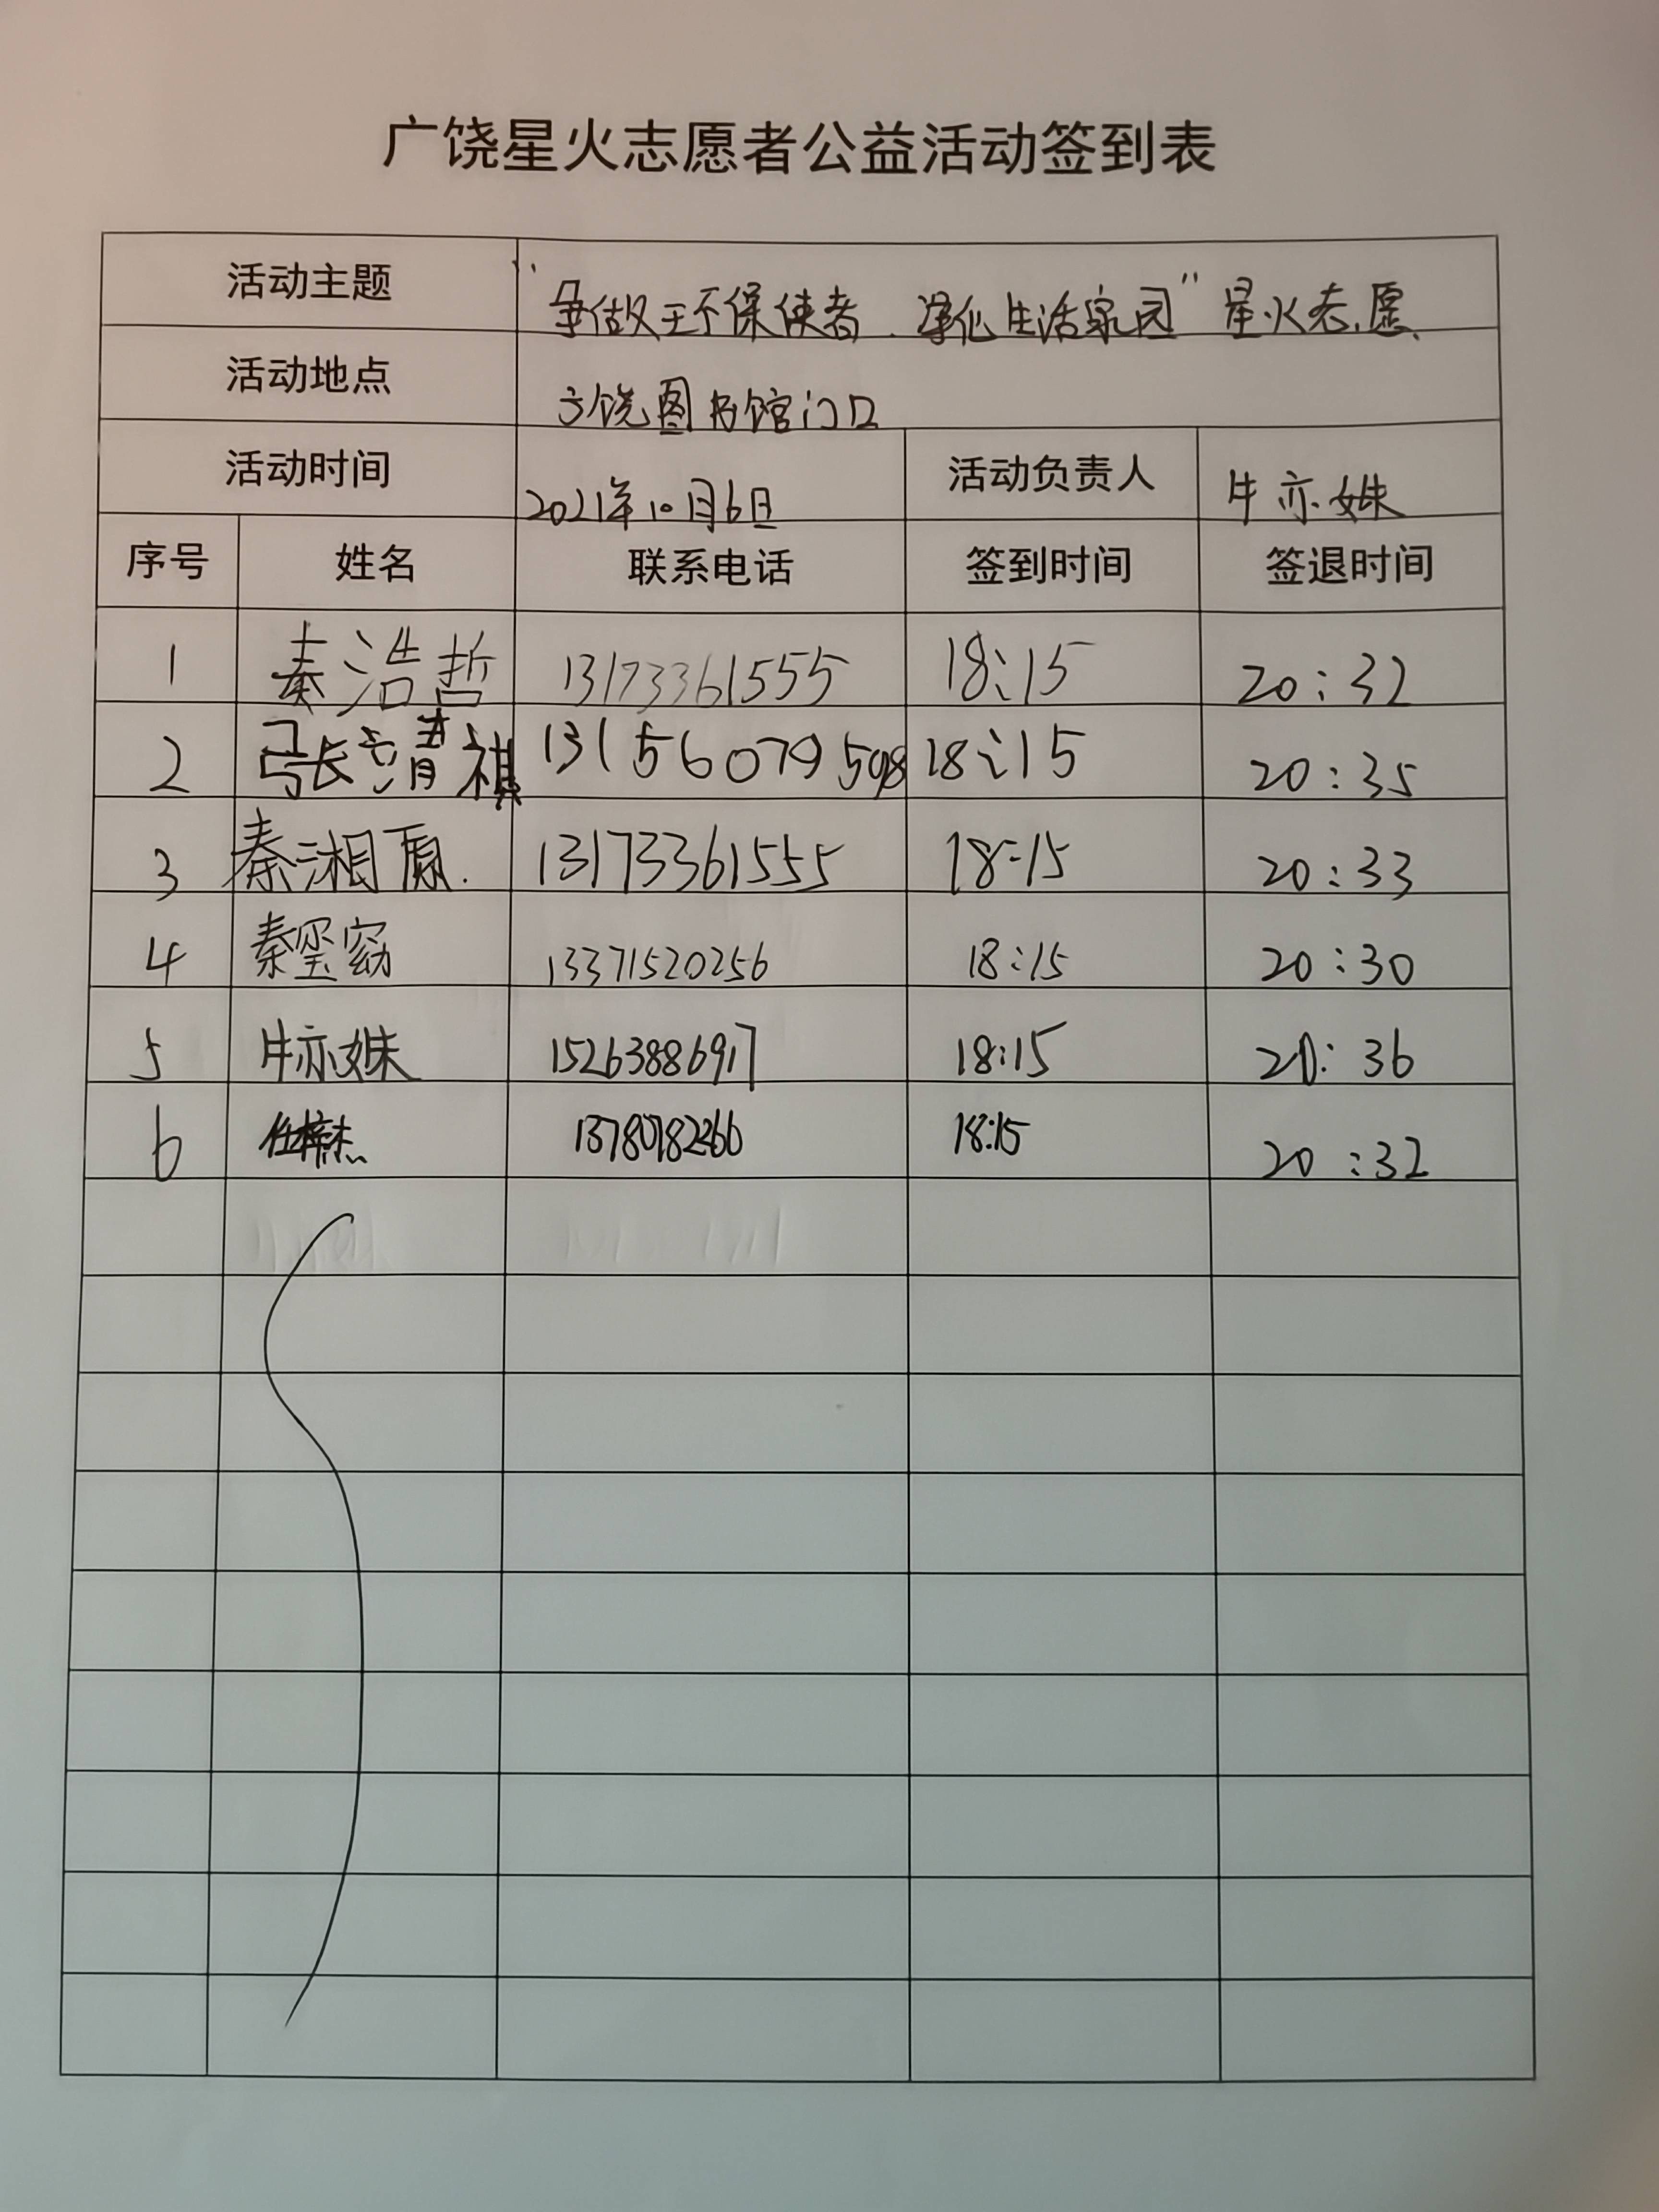 广饶星火志愿者公益活动签到表
活动主题 "争做环保使者、净化生活家园"星火志愿、
活动地点 广饶图书馆门口
活动时间 2021年10月6日 活动负责人 牛亦姝
序号 姓名 联系电话 签到时间 签退时间
1 秦浩哲 13173361555 18:15 20:32
2 张清祺 13156079598 18:15 20:35
3 秦湘原. 13173361555 18:15 20:33
4 秦玺窈 13371520256 18:15 20:30
5 牛亦姝 15263886917 18:15 20:36
6 任梓杰 18:15 20:32